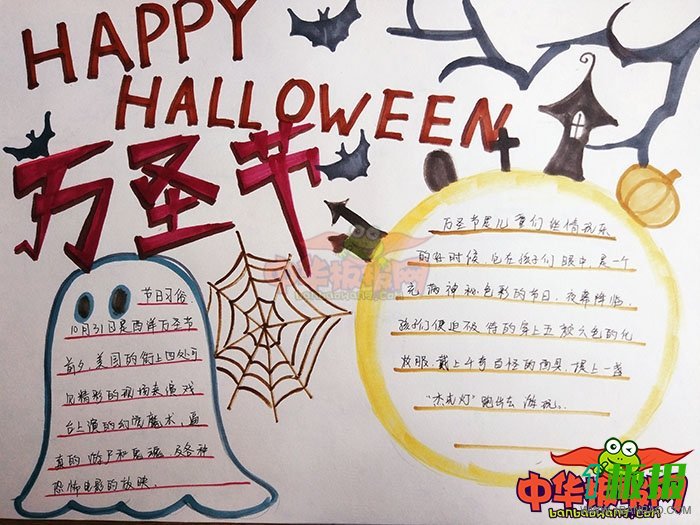 HAPPY
HALLOWEEN
万圣节
节日习俗
10月31日是西洋万圣节
前夕,美国的街上四处可
见精彩的现场表演,戏
台上演的幻觉魔术,逼
真的游尸和鬼魂,及各种
恐怖电影的放映.
万圣节是儿童们纵情玩乐
的好时候,它在孩子们眼中,是一个
充满神秘色彩的节日,夜幕降临,
孩子们便迫不及待的穿上五颜六色的化
妆服,戴上千奇百怪的面具,提上一盏
"杰克灯"跑出去游玩.
中华板报网
banbaowang.com
中华板报网
banbaowang.com